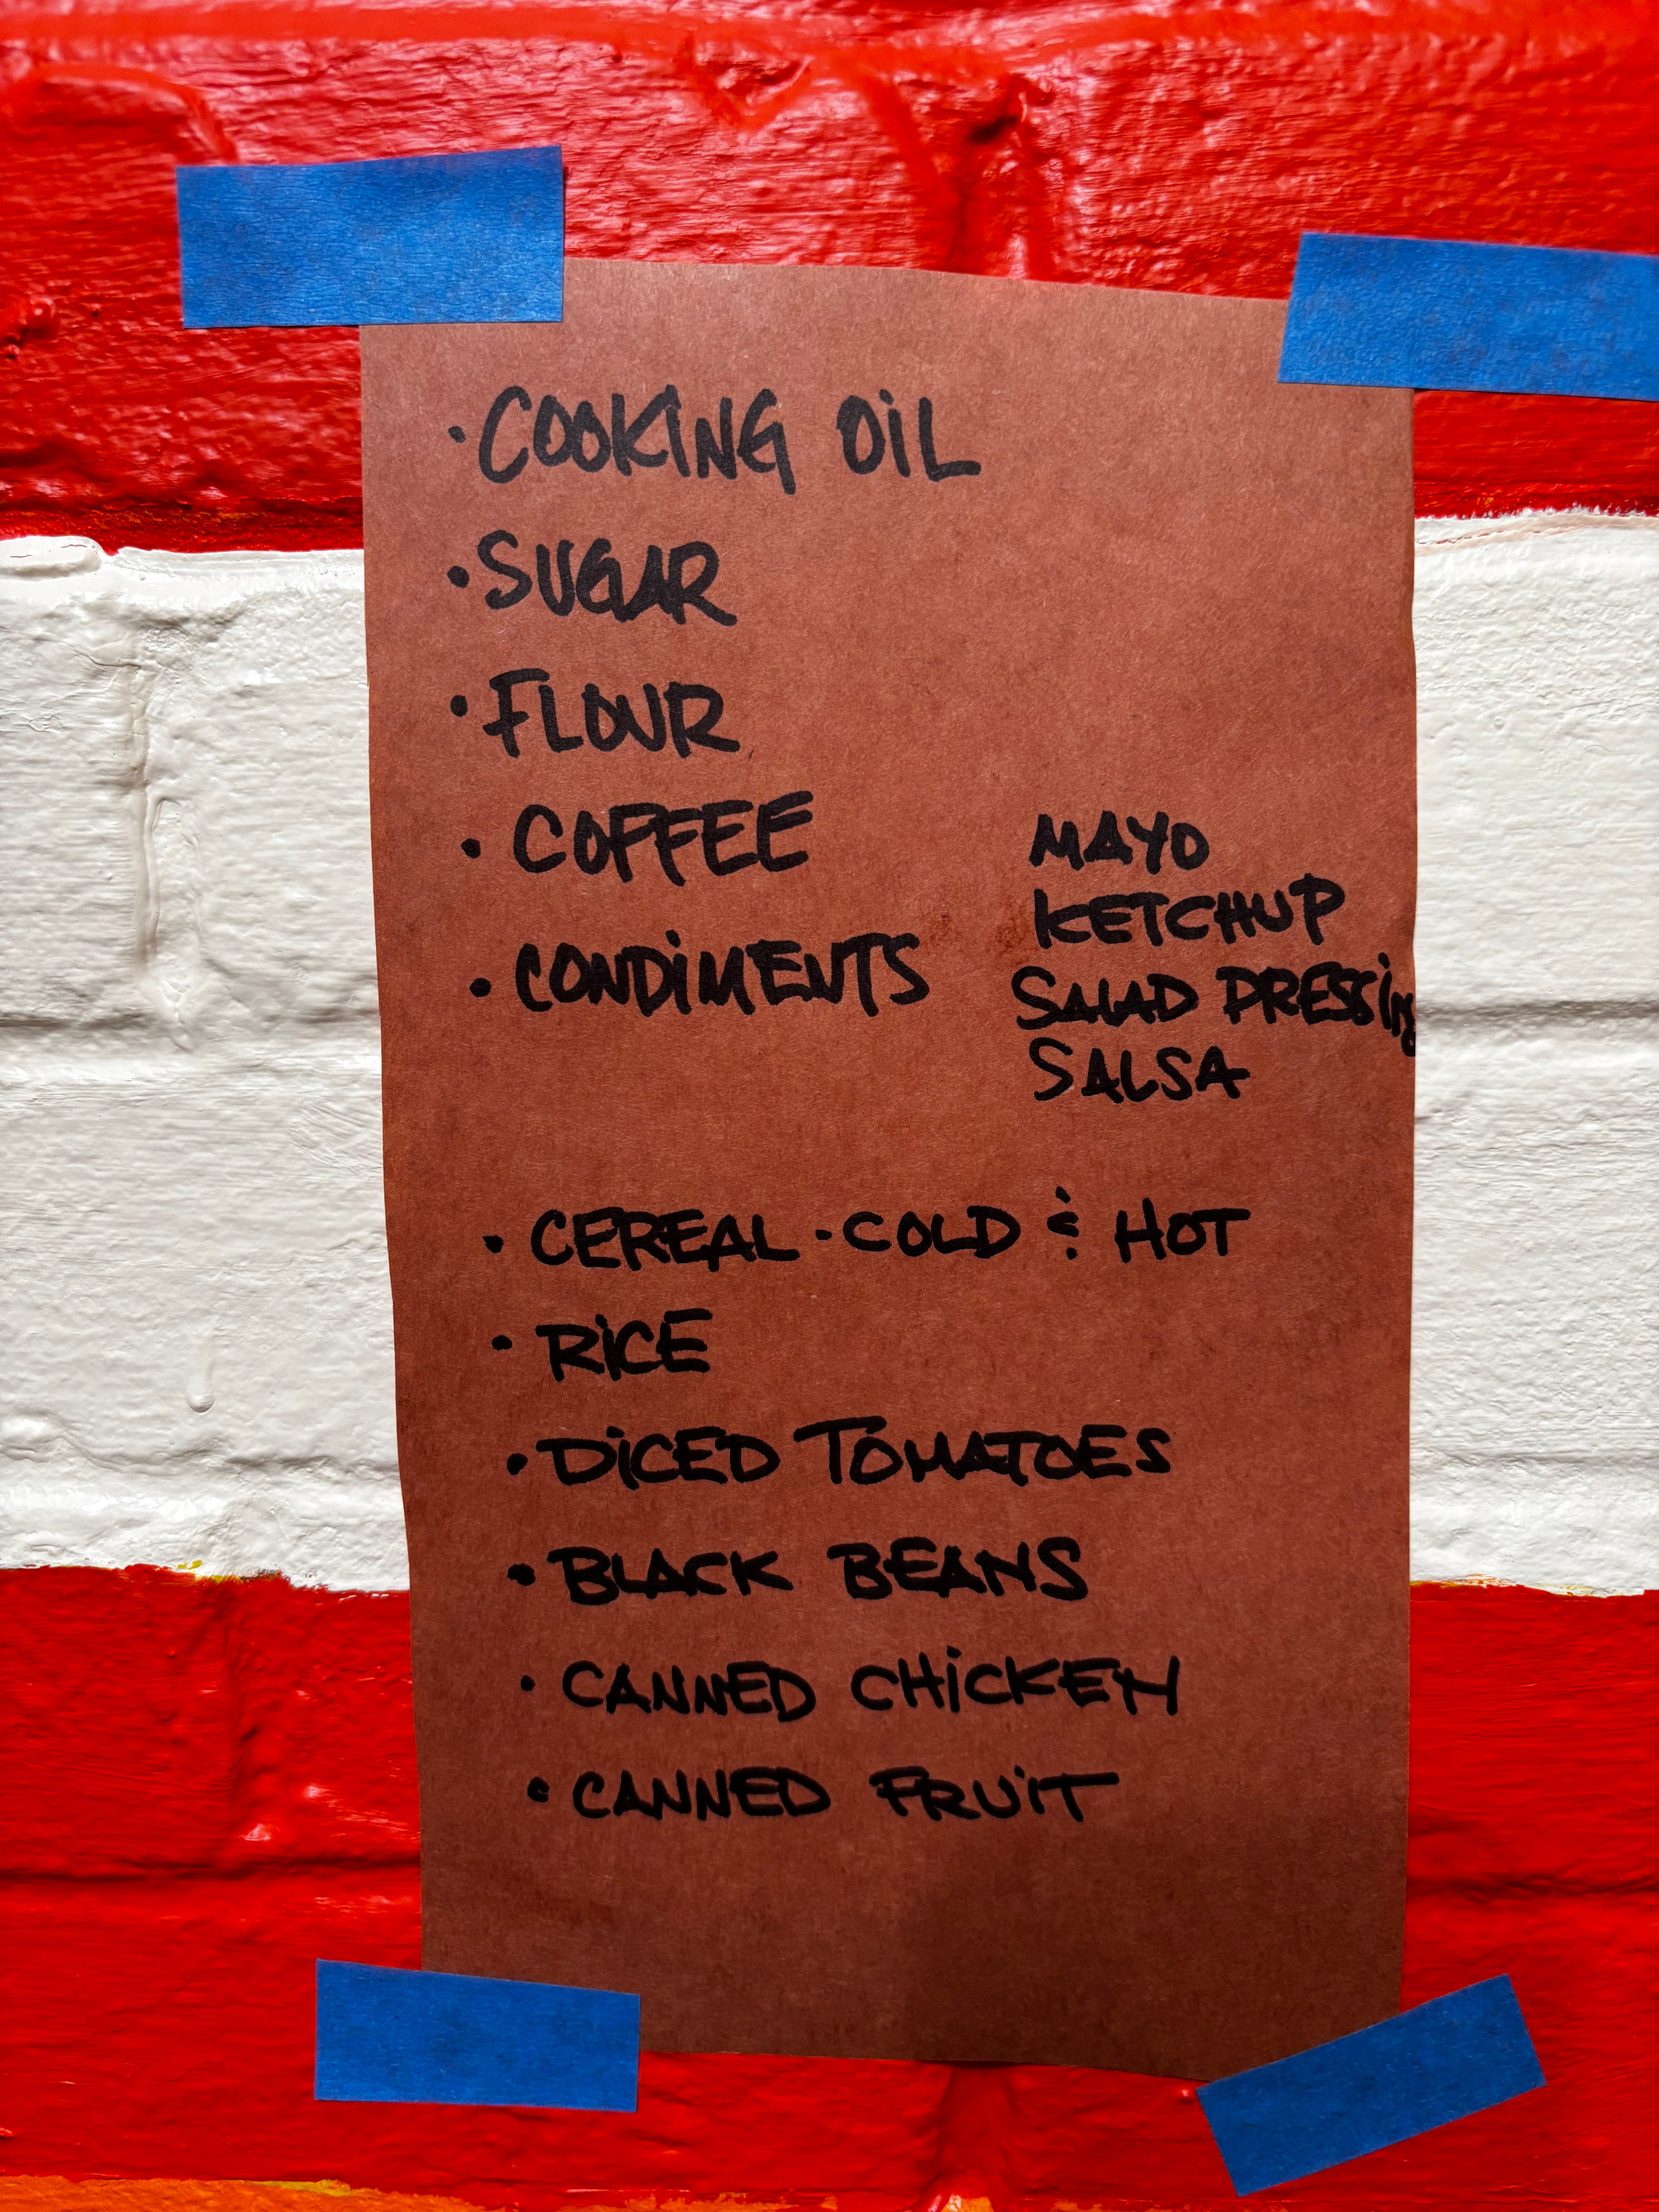 · COOKING OIL
· SUGAR
· FLOUR
· COFFEE
· CONDIMENTS
MAYO
KETCHUP
SALAD DRESSING
SALSA
· CEREAL - COLD & HOT
· RICE
· DICED TOMATOES
· BLACK BEANS
· CANNED CHICKEN
· CANNED FRUIT